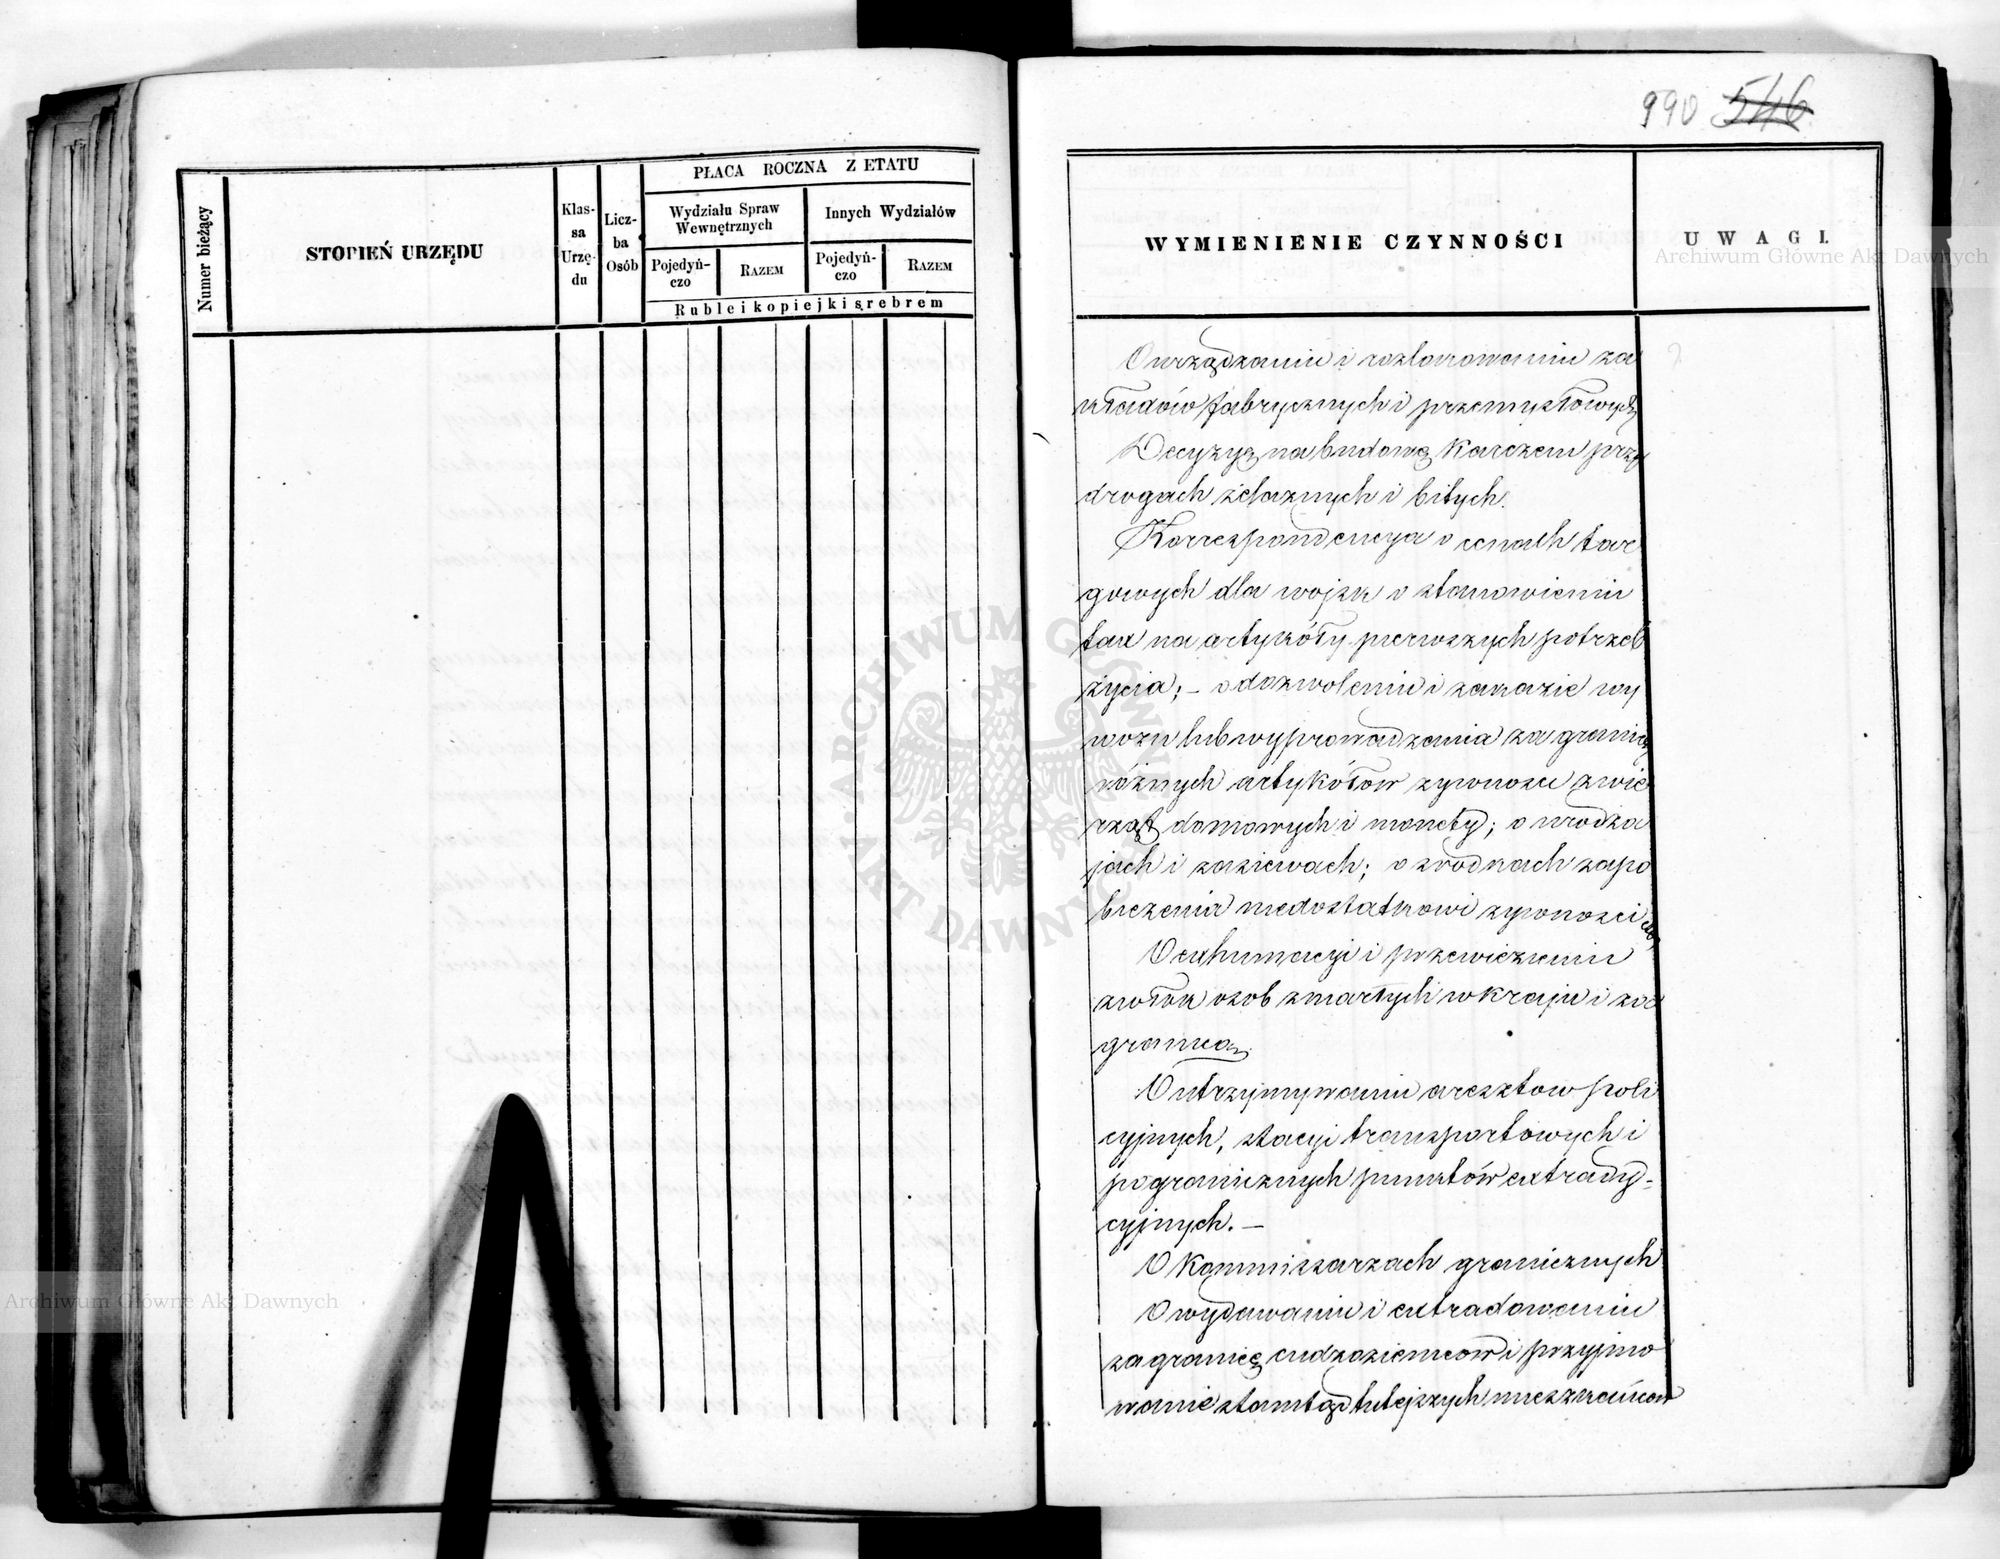 Numer bieżący
STOPIEŃ URZĘDU
Klas-
sa
Urzę-
du
Licz-
ba
Osób
PŁACA ROCZNA Z ETATU
Wydziału Spraw
Wewnętrznych
Innych Wydziałów
Pojedyń-
czo
RAZEM
Pojedyń-
czo
RAZEM
Ruble i kopiejki srebrem
990 546
WYMIENIENIE CZYNNOŚCI
UWAGI.
O urządzaniu i rozlanowaniu za
kładów fabrycznych i przemysłowych
Decyzye na budowę karczem przy
drogach żelaznych i bitych.
Korrespondencya o cenach tar
gowych dla wojsk o stanowieniu
tax na artykóły pierwszych potrzeb
życia; – o dozwoleniu i zakazie wy
wozu lub wyprowadzenia za granicę
różnych artykółów żywności zwie
rząt domowych i monety; o urodza
jach i zasiewach; o środkach zapo
bieżenia niedostatkowi żywności
O exhumacyi i przewiezieniu
zwłok osób zmarłych w kraju i za
granicą.
O utrzymywaniu aresztów poli
cyjnych, stacyi transportowych i
pogranicznych punktów extrady-
cyjnych. –
O Kommissarzach granicznych
O wydawaniu i extradowaniu
za granicę cudzoziemców i przyjmo
wanie stamtąd tutejszych mieszkańców
Archiwum Główne Akt Dawnych
Archiwum Główne Akt Dawnych
ARCHIWUM GŁÓWNE AKT DAWNYCH